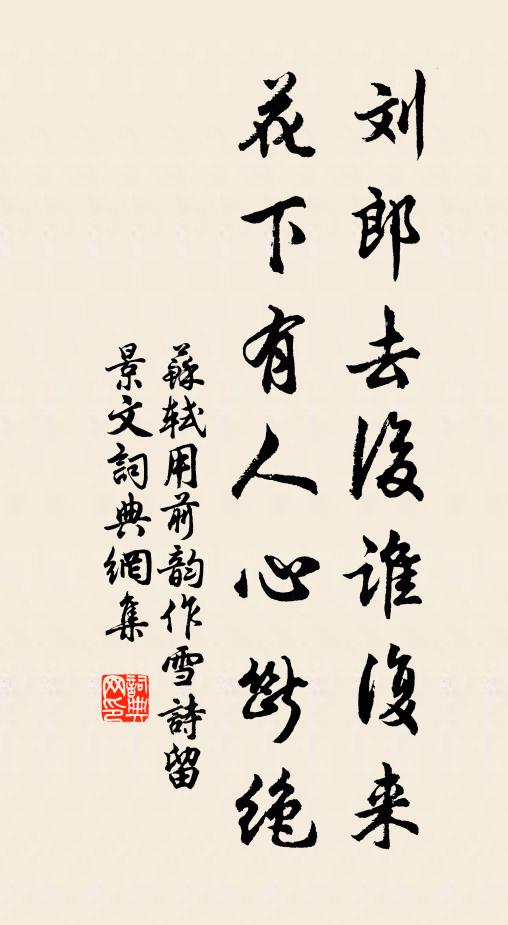 刘郎去後谁復来
花下有人心断绝
蘇軾用前韵作雪詩留
景文詞典網集
詞典
网印